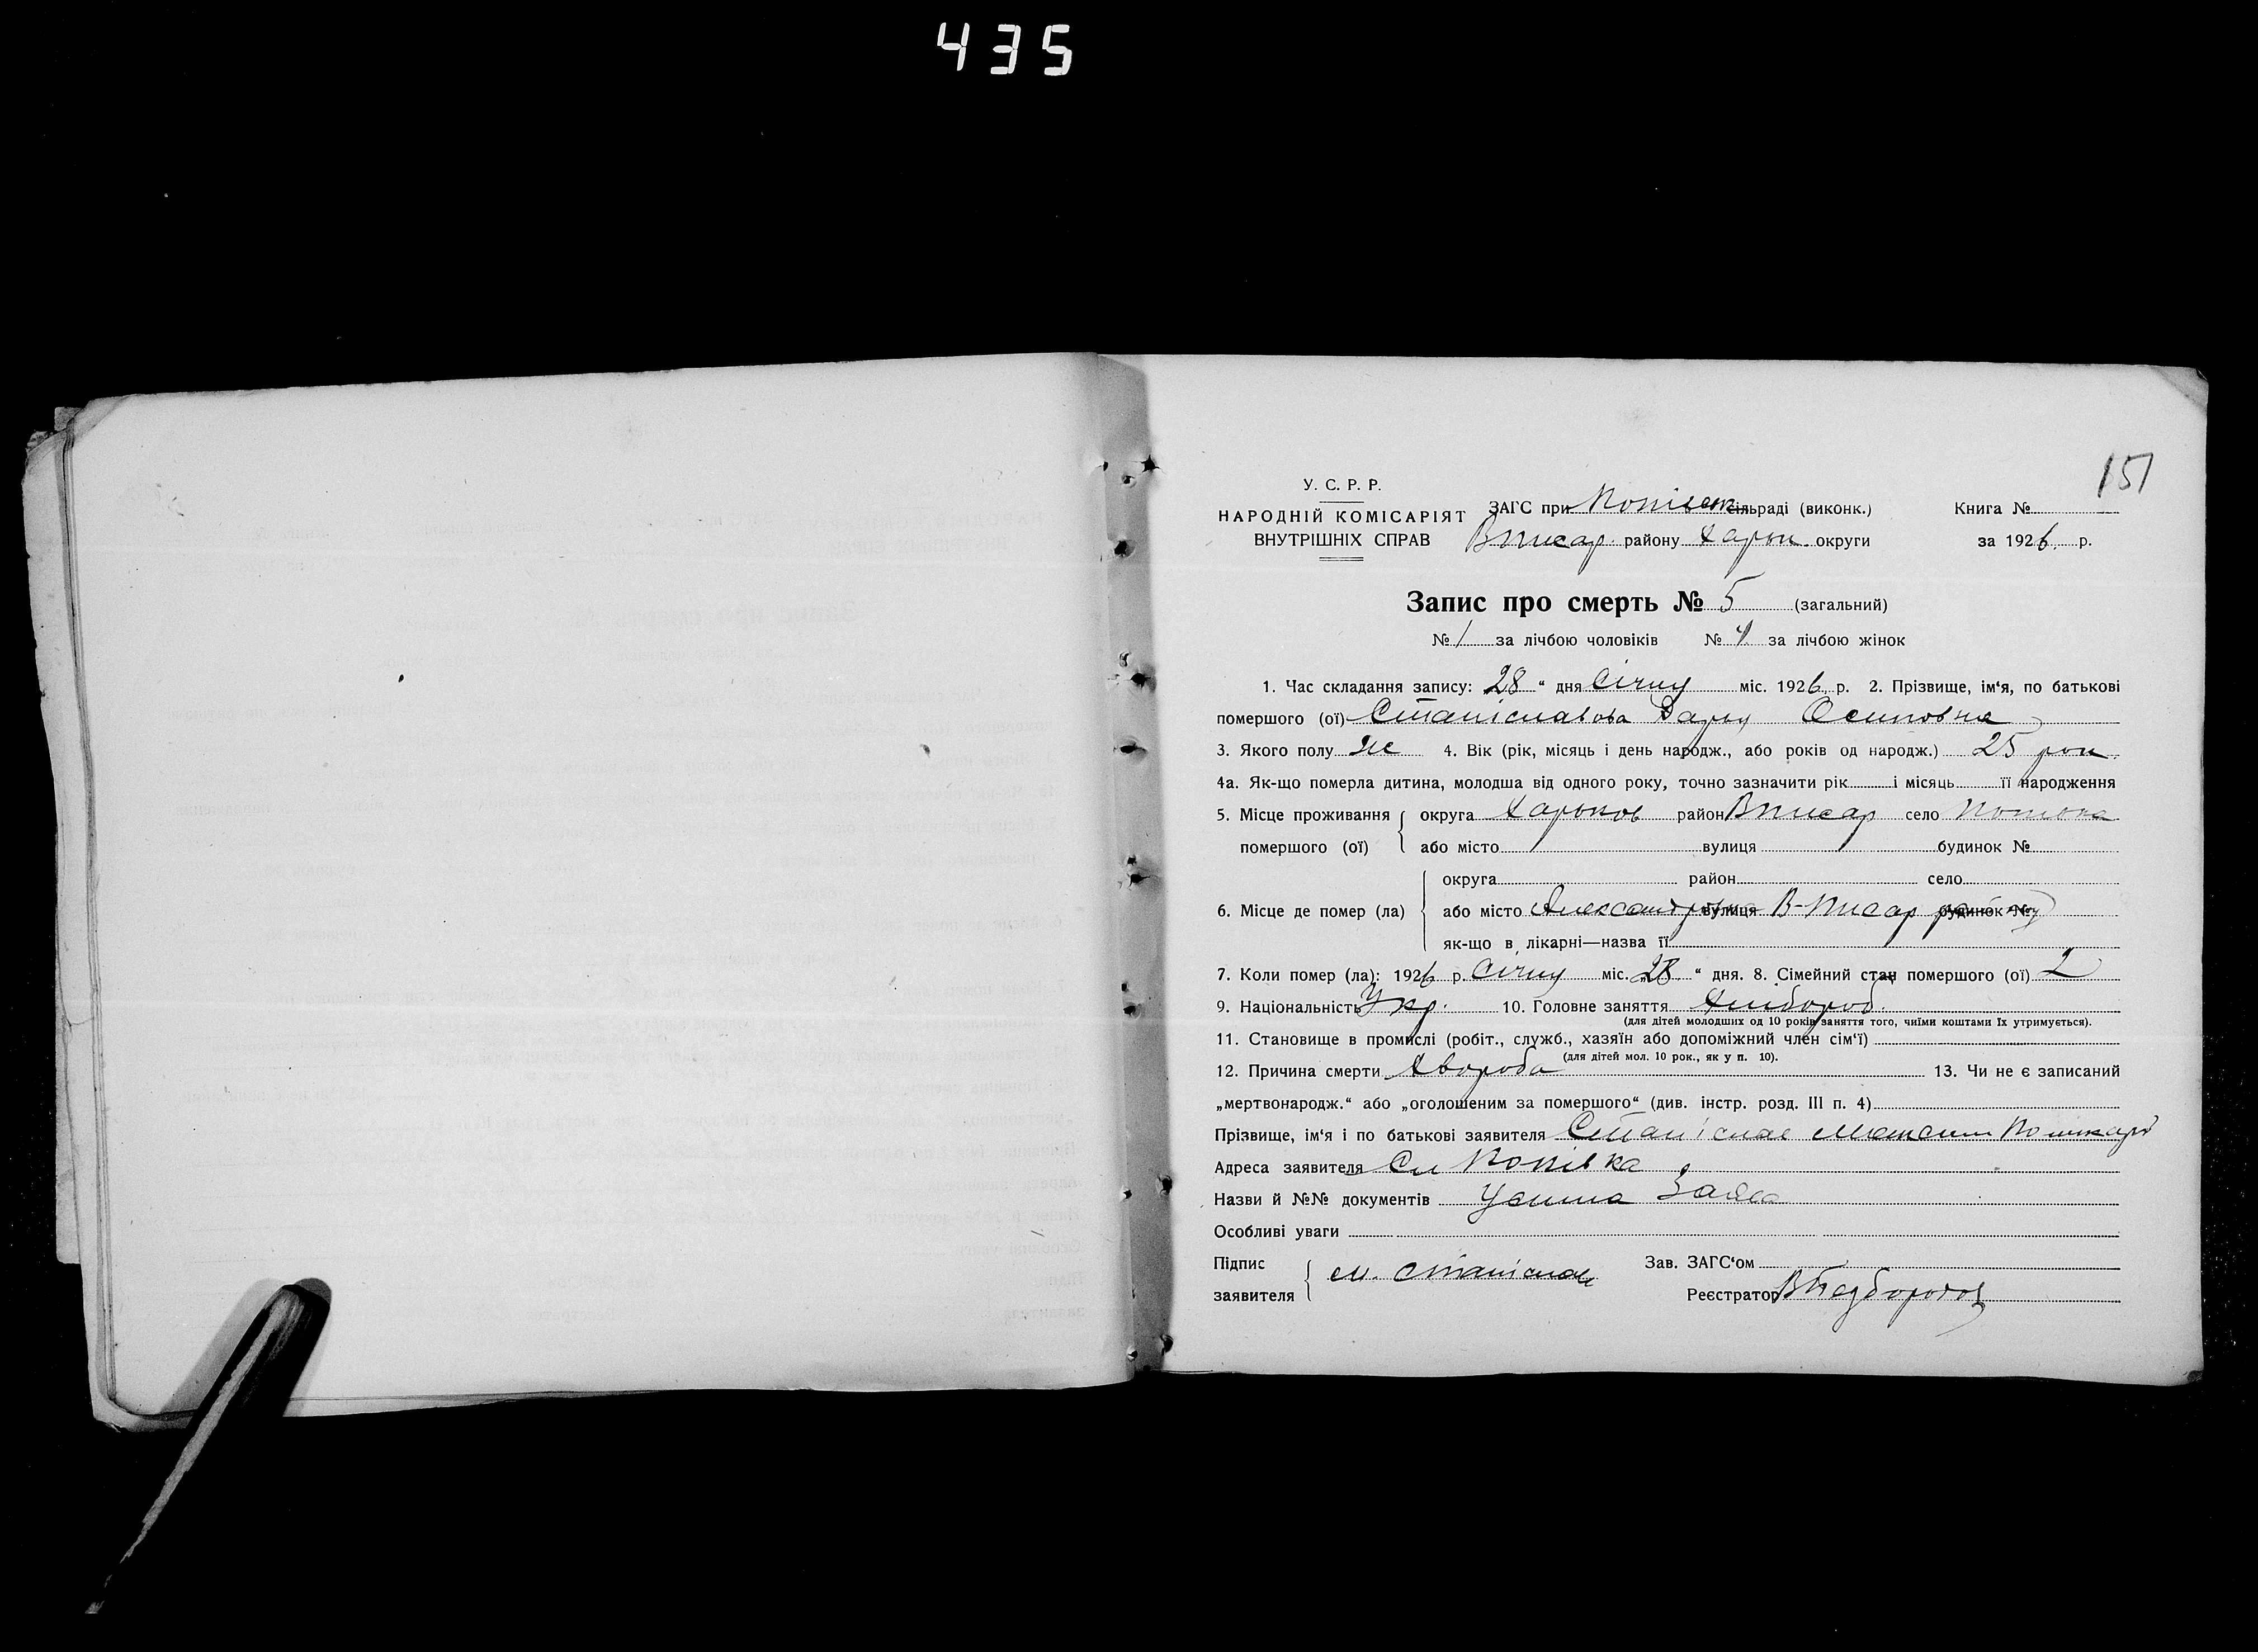 435
151
У. С. Р. Р.
НАРОДНІЙ КОМІСАРІЯТ
ВНУТРІШНІХ СПРАВ
ЗАГС при сільраді (виконк.)
В Писар. району Харьк. округи
Книга №
за 1926. р.
Запис про смерть № 5 (загальний)
№ 1 за лічбою чоловіків № 4 за лічбою жінок
1. Час складання запису: 28 “ дня Січня міс. 1926. р. 2. Прізвище, ім‘я, по батькові
помершого (ої) Станіславова Дарья Осиповна
3. Якого полу же 4. Вік (рік, місяць і день народж., або років од народж.) 25 рок.
4а. Як-що померла дитина, молодша від одного року, точно зазначити рік і місяць її народження
5. Місце проживання помершого (ої) округа Харьков район В Писар село
або місто вулиця будинок №
округа район село
6. Місце де помер (ла) або місто Александровка вулиця В-Писар району будинок №
як-що в лікарні—назва її
7. Коли помер (ла): 1926 р. Січня міс. „28 “ дня. 8. Сімейний стан помершого (ої) 2
9. Національність Укр. 10. Головне заняття Хлибороб.
(для дітей молодших од 10 років заняття того, чиїми коштами їх утримується).
11. Становище в промислі (робіт., служб., хазяїн або допоміжний член сім‘ї)
(для дітей мол. 10 рок., як у п. 10).
12. Причина смерти Хвороба 13. Чи не є записаний
„мертвонародж.“ або „оголошеним за помершого“ (див. інстр. розд. III п. 4)
Прізвище, ім‘я і по батькові заявителя Станіслав Максим
Адреса заявителя Сл Копівка
Назви й №№ документів Усима Заява
Особливі уваги
Підпис заявителя М. Станіслав
Зав. ЗАГС‘ом
Реєстратор